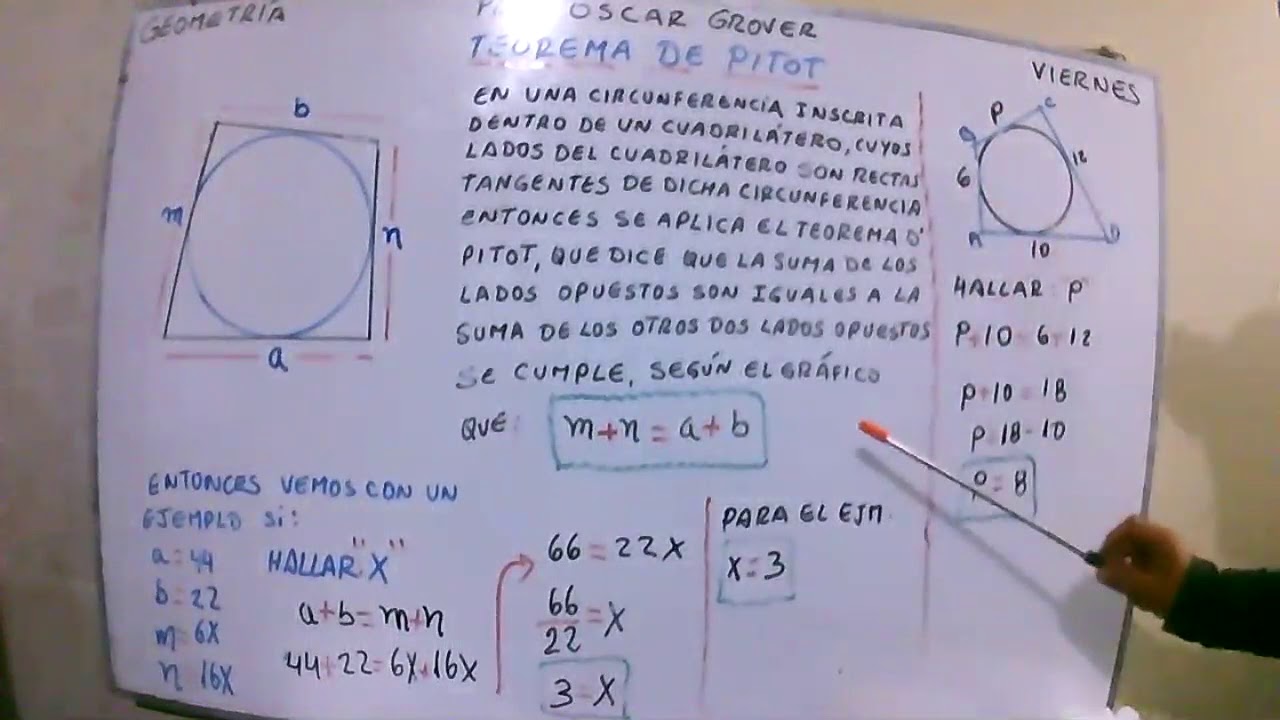 GEOMETRÍA
OSCAR GROVER
TEOREMA DE PITOT
VIERNES
b
m
n
a
EN UNA CIRCUNFERENCIA INSCRITA
DENTRO DE UN CUADRILÁTERO, CUYOS
LADOS DEL CUADRILÁTERO SON RECTAS
TANGENTES DE DICHA CIRCUNFERENCIA
ENTONCES SE APLICA EL TEOREMA D'
PITOT, QUE DICE QUE LA SUMA DE LOS
LADOS OPUESTOS SON IGUALES A LA
SUMA DE LOS OTROS DOS LADOS OPUESTOS
SE CUMPLE, SEGÚN EL GRÁFICO
QUE: m+n=a+b
ENTONCES VEMOS CON UN
EJEMPLO SI:
a=44
b=22
m=6X
n 16X
HALLAR "X"
a+b=m+n
44+22=6X+16X
66=22X
66/22=X
3=X
PARA EL EJM.
X=3
P
C
12
6
A
D
10
HALLAR: P
P+10=6+12
P+10=18
P=18-10
P=8